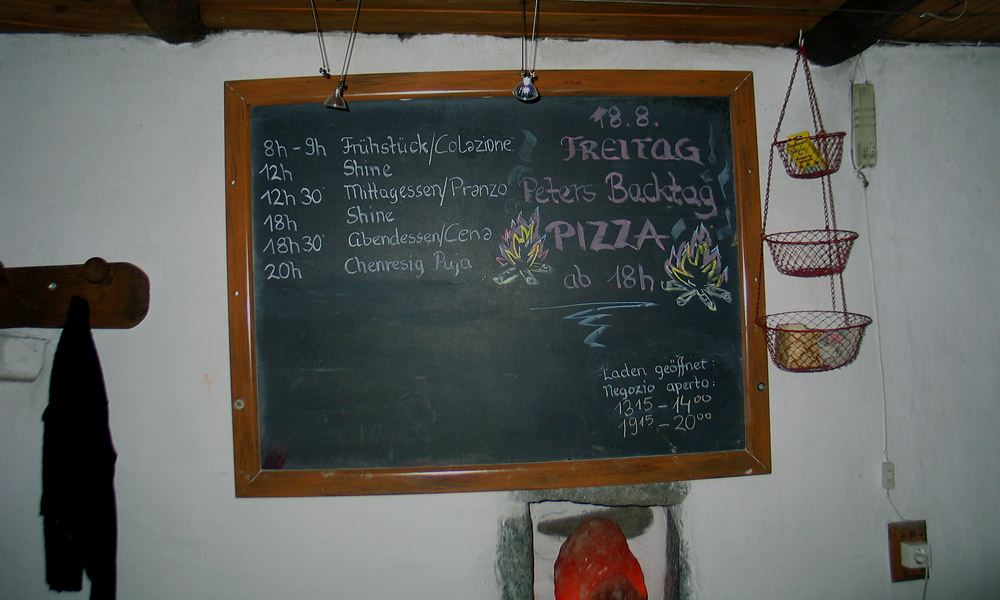 8h - 9h Frühstück/Colazione
12h Shine
12h 30 Mittagessen/Pranzo
18h Shine
18h 30 Abendessen/Cena
20h Chenresig Puja
18.8.
FREITAG
Peters Backtag
PIZZA
ab 18h
Laden geöffnet:
Negozio aperto:
13 15 - 14 00
19 15 - 20 00